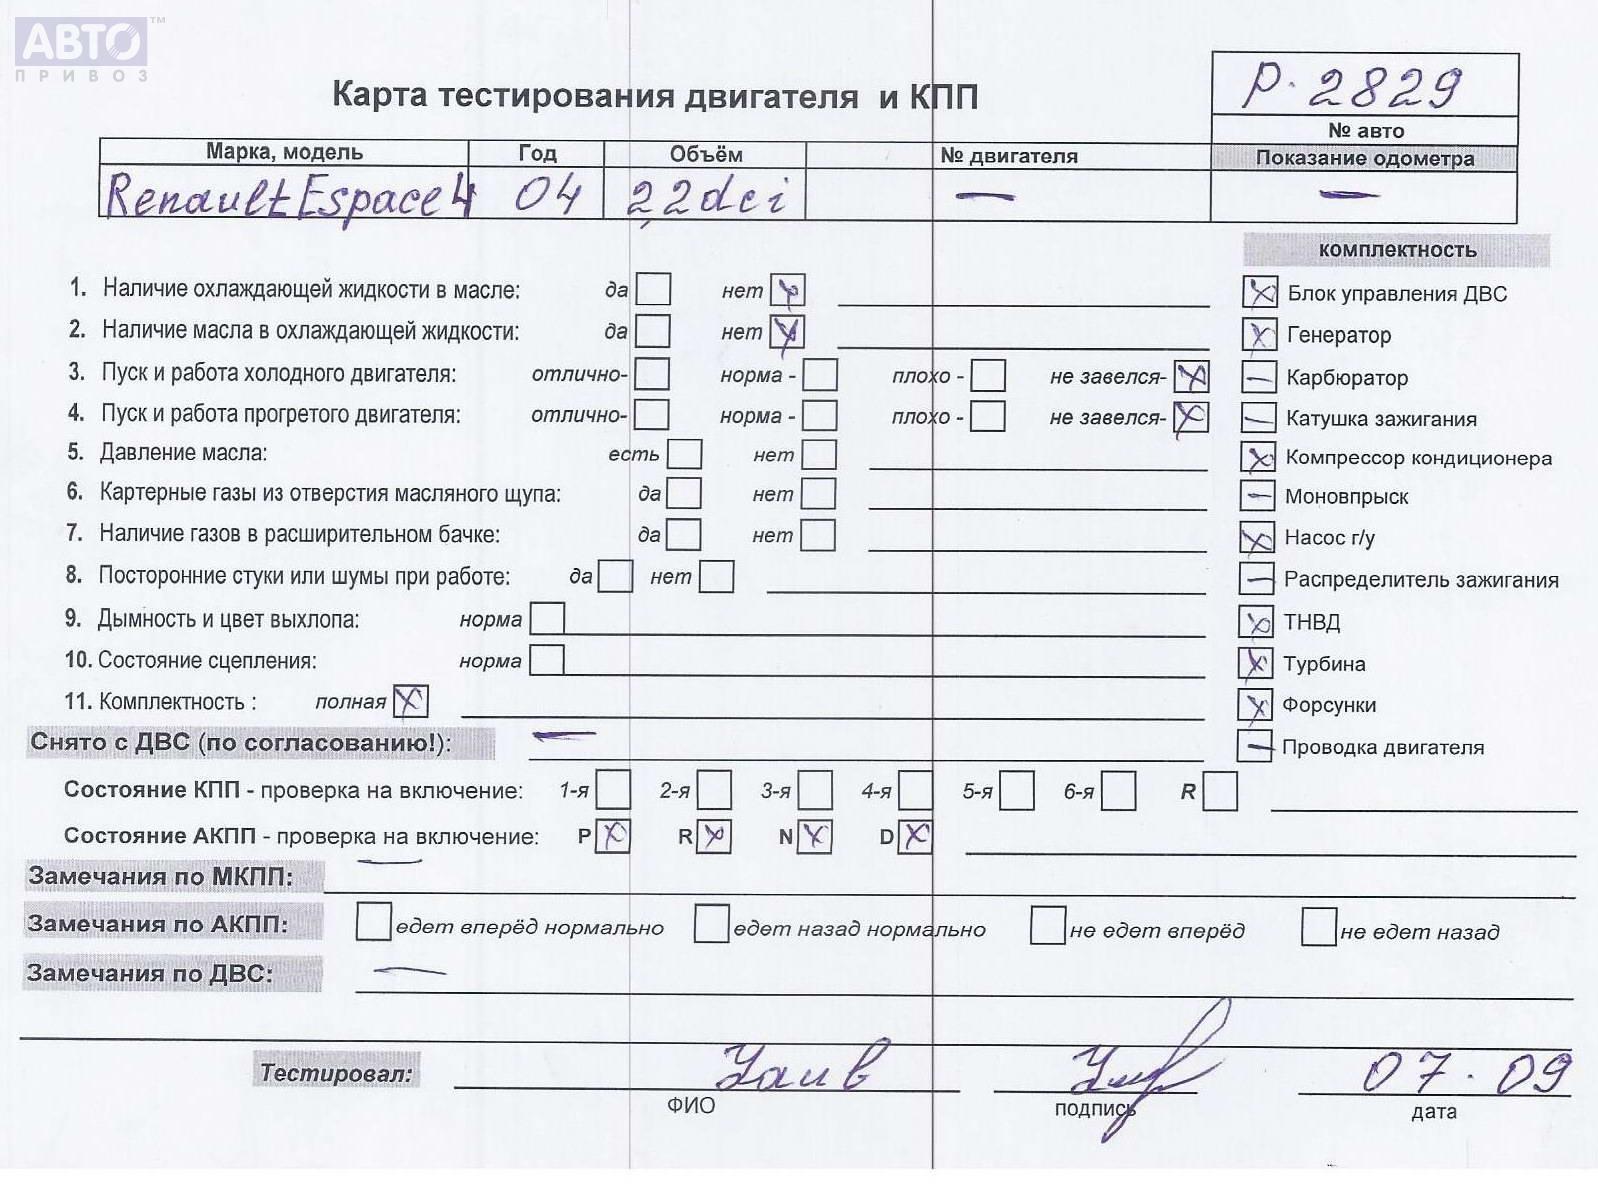 АВТО™
ПРИВОЗ
Карта тестирования двигателя и КПП
Р. 2829
№ авто
Марка, модель Год Объём № двигателя Показание одометра
Renault Espace 4 04 2,2dci — —
комплектность
1. Наличие охлаждающей жидкости в масле: да нет Блок управления ДВС
2. Наличие масла в охлаждающей жидкости: да нет Генератор
3. Пуск и работа холодного двигателя: отлично- норма - плохо - не завелся- Карбюратор
4. Пуск и работа прогретого двигателя: отлично- норма - плохо - не завелся- Катушка зажигания
5. Давление масла: есть нет Компрессор кондиционера
6. Картерные газы из отверстия масляного щупа: да нет Моновпрыск
7. Наличие газов в расширительном бачке: да нет Насос г/у
8. Посторонние стуки или шумы при работе: да нет Распределитель зажигания
9. Дымность и цвет выхлопа: норма ТНВД
10. Состояние сцепления: норма Турбина
11. Комплектность : полная Форсунки
Снято с ДВС (по согласованию!): — Проводка двигателя
Состояние КПП - проверка на включение: 1-я 2-я 3-я 4-я 5-я 6-я R
Состояние АКПП - проверка на включение: P R N D
Замечания по МКПП: —
Замечания по АКПП: едет вперёд нормально едет назад нормально не едет вперёд не едет назад
Замечания по ДВС: —
Тестировал: 07.09
ФИО подпись дата